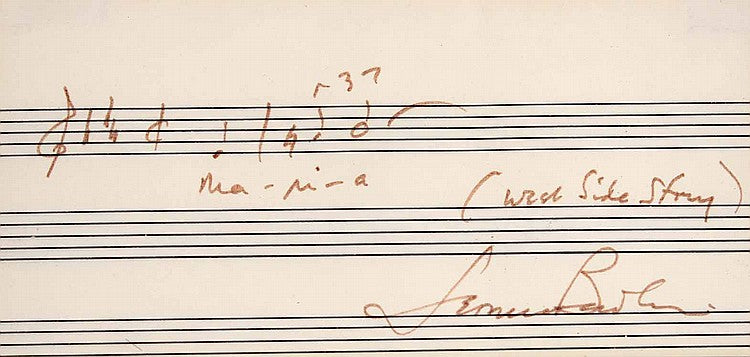 3
Ma - ri - a
(West Side Story)
Leonard Bernstein